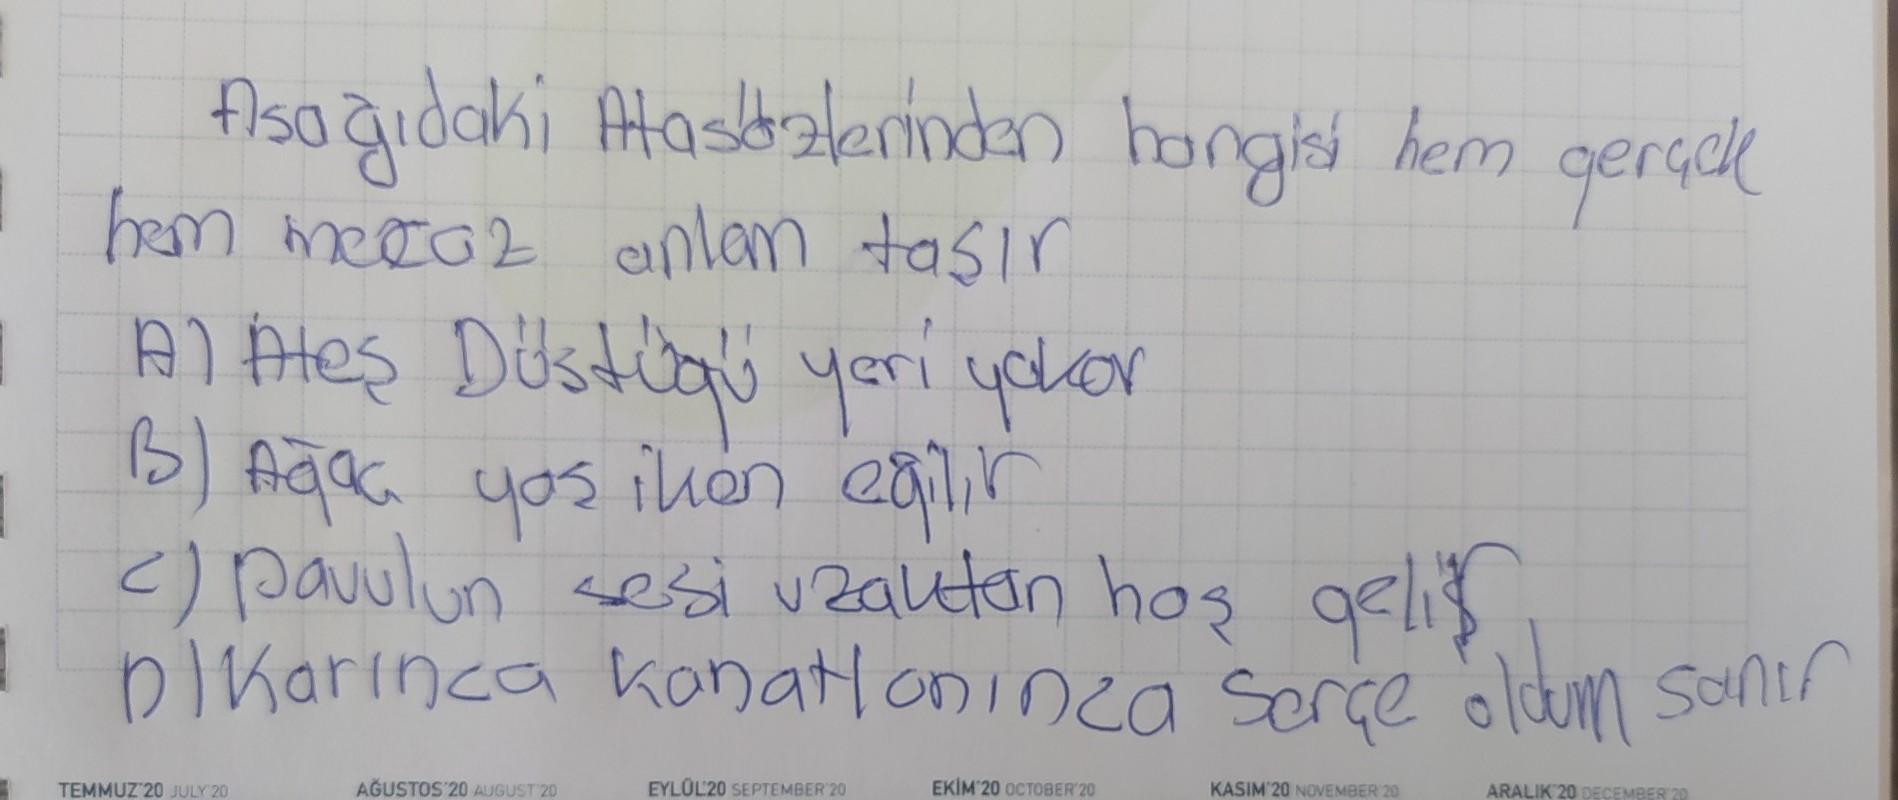 Asağıdaki Atasözlerinden hangisi hem gerçek
hem mecaz anlam taşır
A) Ateş Düştügü yeri yakar
B) Ağaç yaş iken eğilir
C) Davulun sesi uzaktan hoş gelir
D) Karınca kanatlanınca serçe oldum sanır
TEMMUZ'20 JULY'20 AĞUSTOS'20 AUGUST'20 EYLÜL'20 SEPTEMBER'20 EKİM'20 OCTOBER'20 KASIM'20 NOVEMBER'20 ARALIK'20 DECEMBER'20